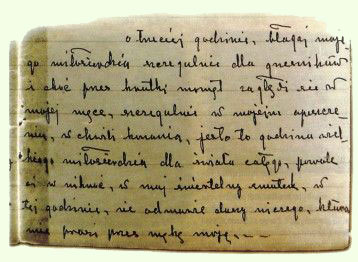 o trzeciej godzinie, błagaj moje-
go miłosierdzia szczególnie dla grzeszników
i choć przez krótki moment zagłębiaj się w
mojej męce, szczególnie w mojem opuszcze-
niu, w chwili konania, jest to godzina wiel-
kiego miłosierdzia dla świata całego, pozwolę
ci wniknąć, w mój śmiertelny smutek, w
tej godzinie, nie odmówię duszy niczego, która
mnie prosi przez mękę moją, - -